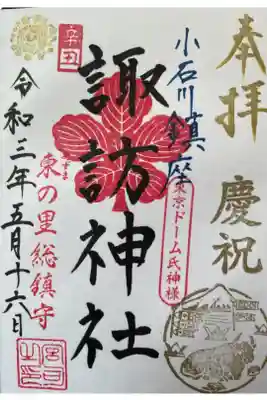 奉拝 慶祝
小石川鎮座
東京ドーム氏神様
辛丑
諏訪神社
あずま
東の里総鎮守
令和三年五月十六日
宮司之印